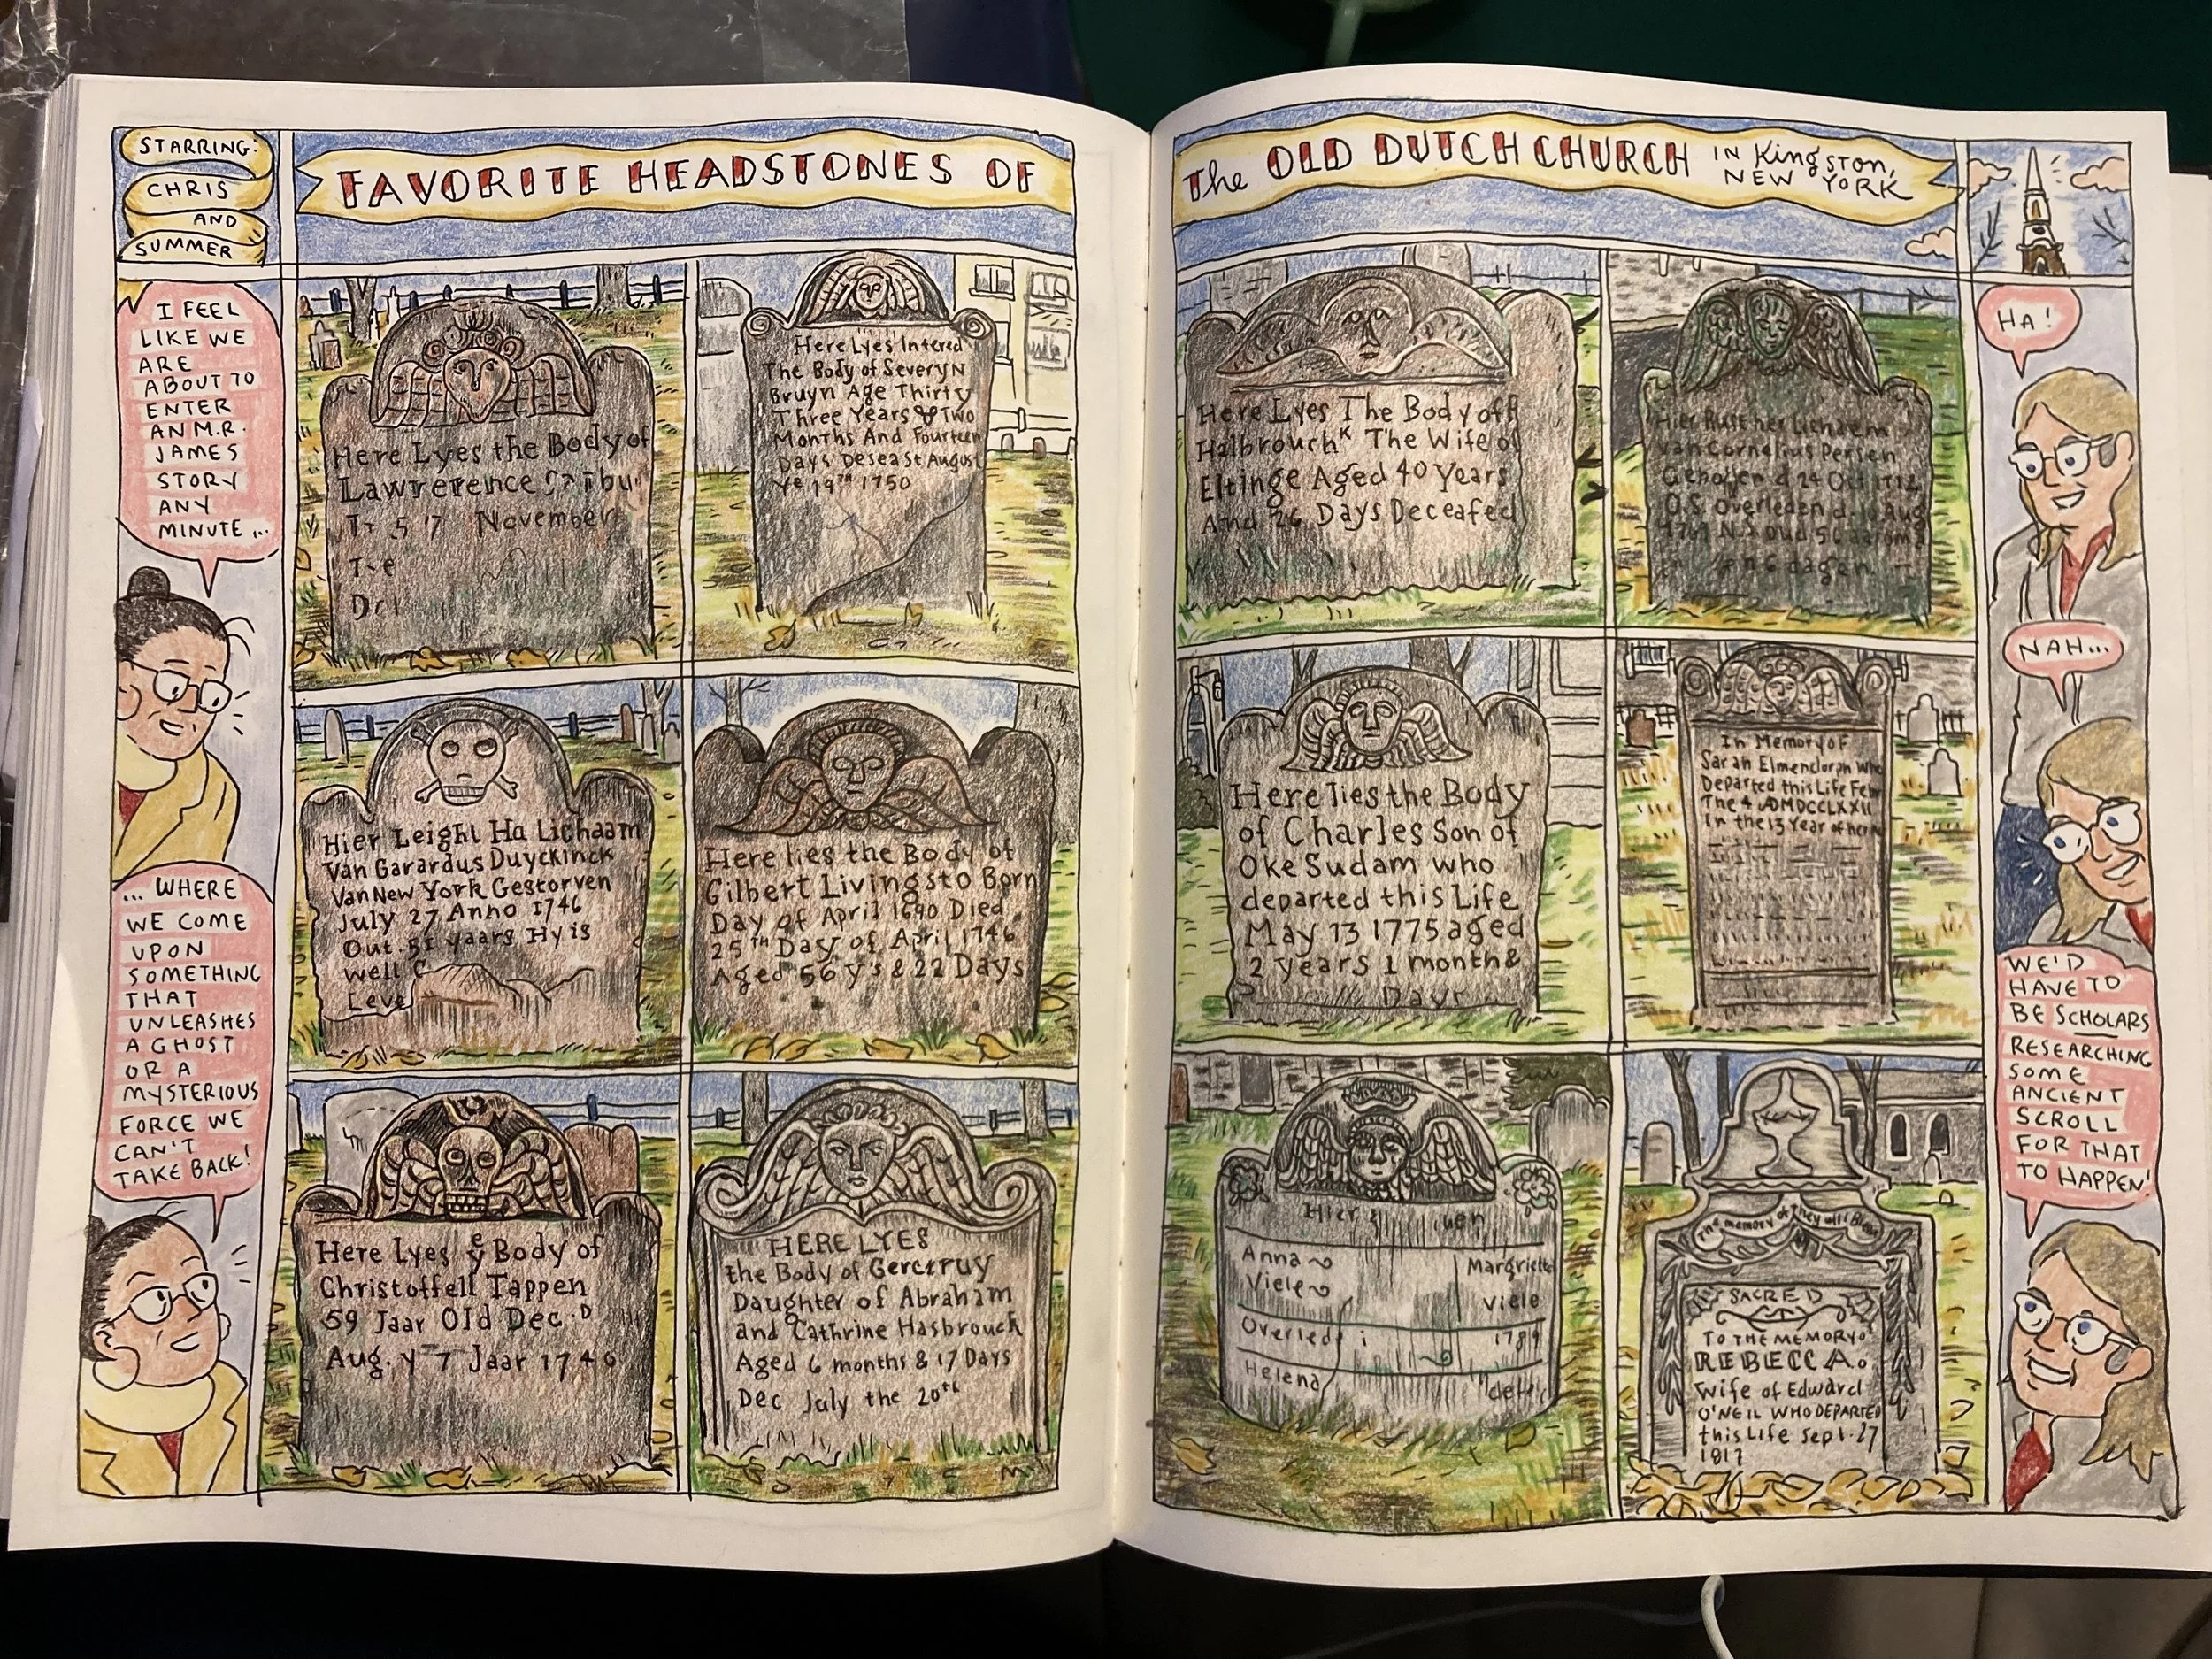 STARRING:
CHRIS
AND
SUMMER
FAVORITE HEADSTONES OF
The OLD DUTCH CHURCH IN Kingston,
NEW YORK
I FEEL
LIKE WE
ARE
ABOUT TO
ENTER
AN M.R.
JAMES
STORY
ANY
MINUTE...
...WHERE
WE COME
UPON
SOMETHING
THAT
UNLEASHES
A GHOST
OR A
MYSTERIOUS
FORCE WE
CAN'T
TAKE BACK!
Here Lyes the Body of
Lawrerence
5 17 November
Here Lyes Intered
The Body of Severyn
Bruyn Age Thirty
Three Years & Two
Months And Fourteen
Days Deseast August
Ye 19th 1750
Hier Leight Ha Lichaam
Van Garardus Duyckinck
Van New York Gestorven
July 27 Anno 1746
Out 51 yaars Hy is
well
Leve
Here lies the Body of
Gilbert Livingsto Born
Day of April 1690 Died
25th Day of April 1746
Aged 56 y's & 22 Days
Here Lyes ye Body of
Christoffell Tappen
59 Jaar Old Dec.D
Aug. y 7 Jaar 1740
HERE LYES
the Body of Gerctruy
Daughter of Abraham
and Cathrine Hasbrouck
Aged 6 months & 17 Days
Dec July the 20th
Here Lyes The Body off
Halbrouchk The Wife of
Eltinge Aged 40 Years
And 26 Days Deceafed
Hier Rust her Lichaem
Van Cornelius Persen
d 24 Oct 1712
O.S. Overleden d. 10 Aug
N.S oud 56
en 6 dagen
Here lies the Body
of Charles Son of
Oke Sudam who
departed this Life
May 13 1775 aged
2 years 1 month &
Days
In Memory of
Sarah Elmendorph Who
Departed this Life Febr
The 4 ADMDCCLXXII
In the 13 Year of her
Hier
Anna Margriet
Viele Viele
Overlede 1789
Helena
The memory of They will Bless
SACRED
TO THE MEMORY O
REBECCA.
Wife of Edward
O'NEIL WHO DEPARTED
this Life Sept. 27
1817
HA!
NAH...
WE'D
HAVE TO
BE SCHOLARS
RESEARCHING
SOME
ANCIENT
SCROLL
FOR THAT
TO HAPPEN!